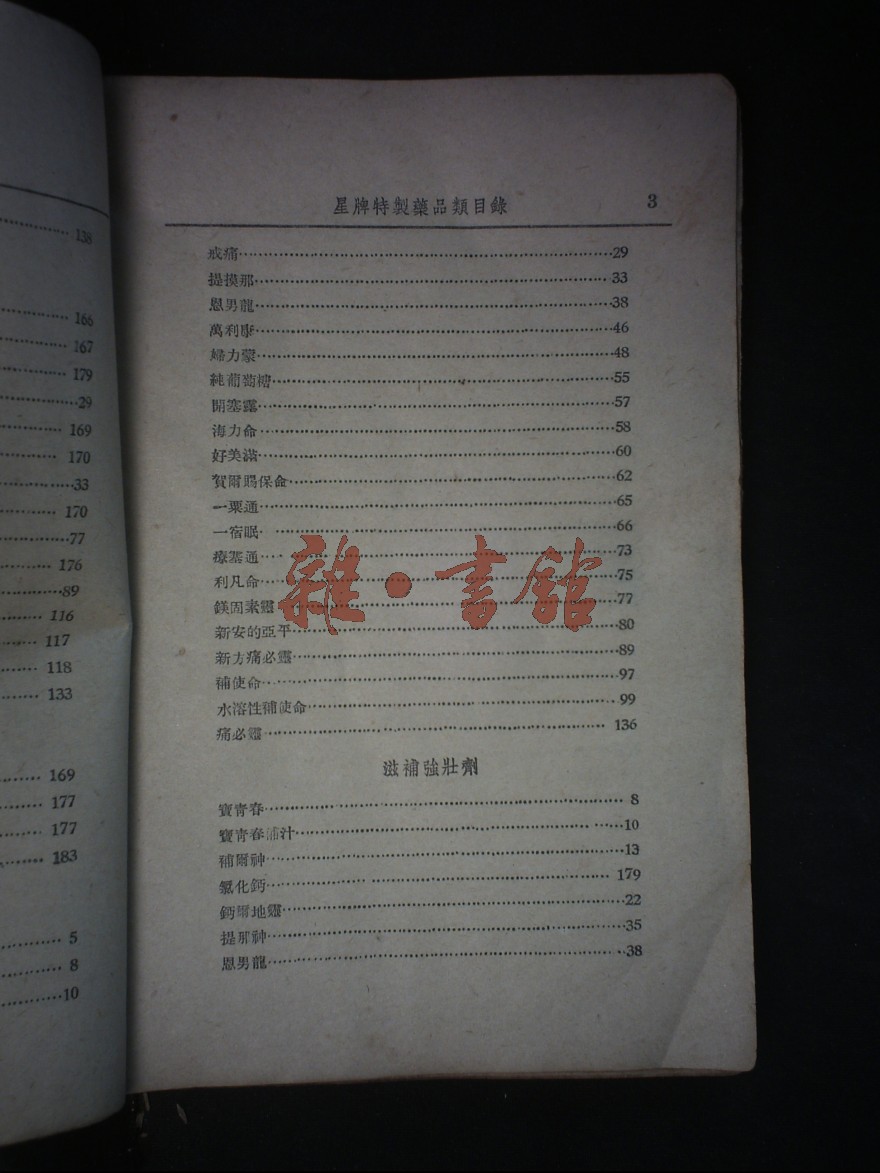 138
166
167
179
29
169
170
33
170
77
176
89
116
117
118
133
169
177
177
183
5
8
10
星牌特製藥品類目錄 3
戒痛 29
提摸那 33
恩男龍 38
萬利康 46
婦力蒙 48
純葡萄糖 55
開塞露 57
海力命 58
好美滿 60
賀爾賜保命 62
一粟通 65
一宿眠 66
療塞通 73
利凡命 75
鎂固素靈 77
新安的亞平 80
新方痛必靈 89
補使命 97
水溶性補使命 99
痛必靈 136
滋補強壯劑
寶青春 8
寶青春補汁 10
補爾神 13
氯化鈣 179
鈣爾地靈 22
提那神 35
恩男龍 38
雜·書館